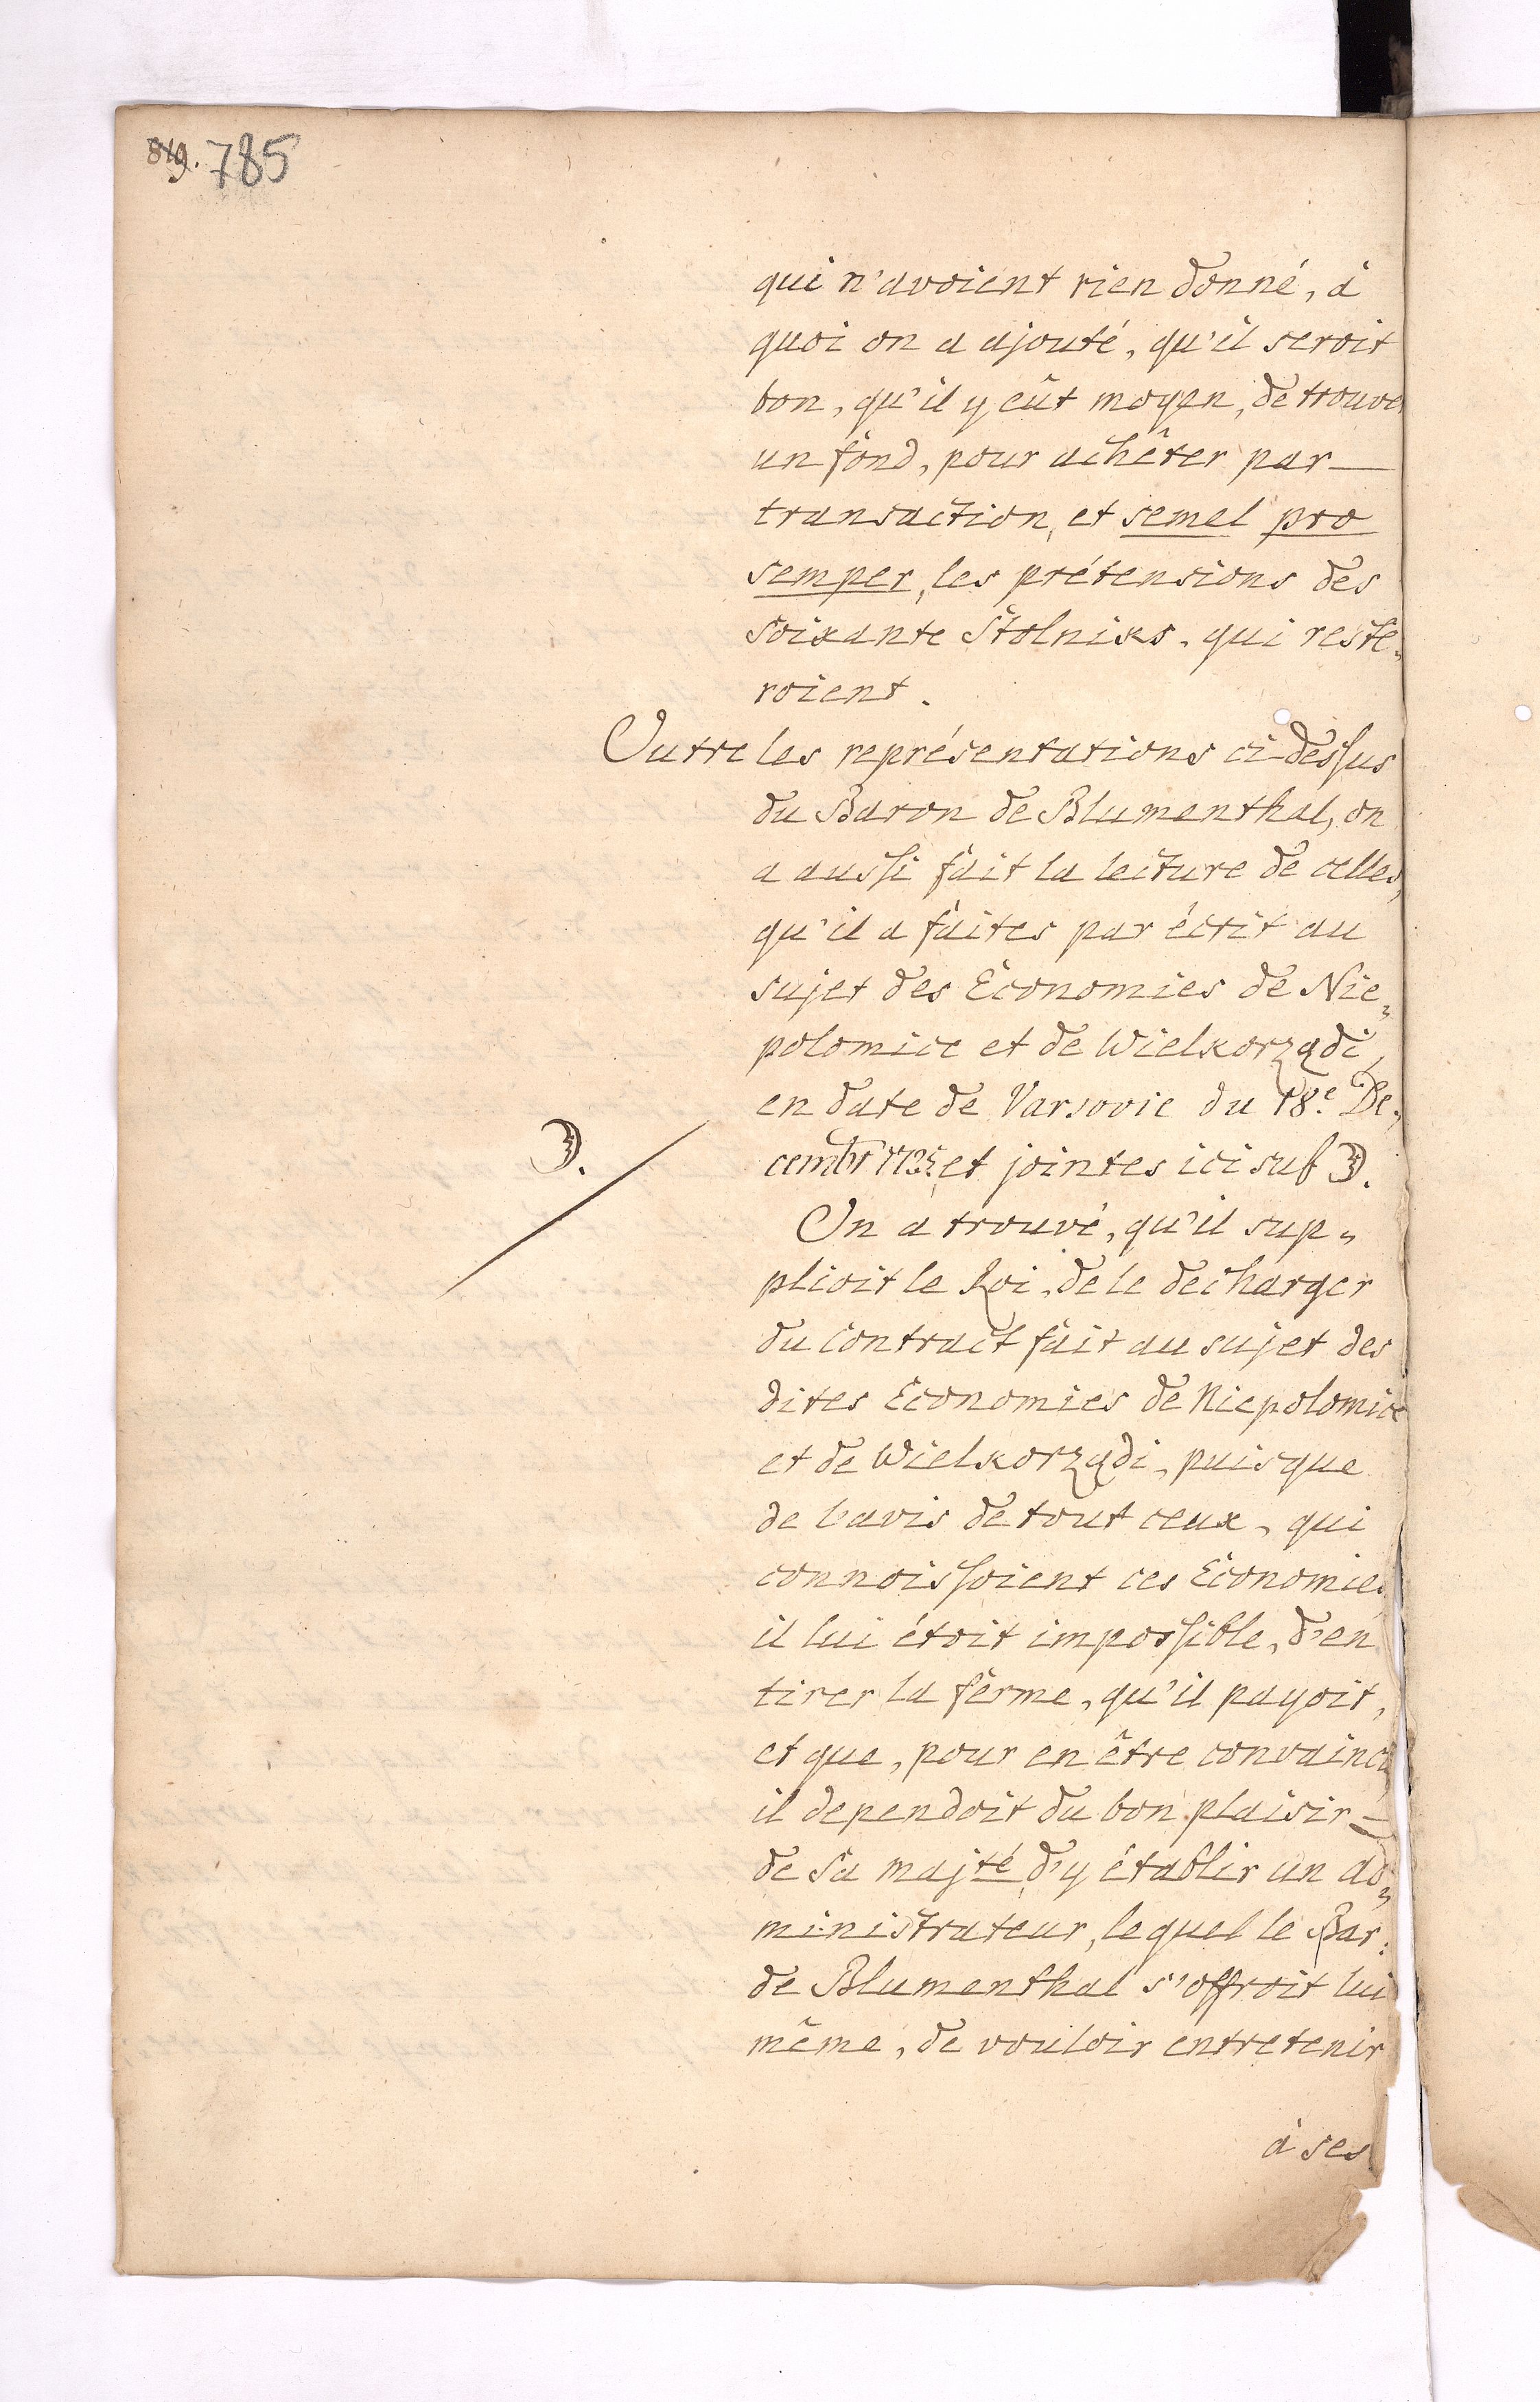 819. 785
qui n'avoient rien donné, à
quoi on a ajouté, qu'il seroit
bon, qu'il y eût moyen, de trouver
un fond, pour achêter par
transaction, et semel pro
semper, les prétensions des
soixante Stolniks, qui reste„
roient.
Outre les représentations ci-dessus
du Baron de Blumenthal, on
a aussi fait la lecture de celles,
qu'il a faites par écrit au
sujet des Economies de Nie„
polomice et de Wielkorządi,
en date de Varsovie du 18.e De„
cembr et jointes ici sub D.
D.
On a trouvé, qu'il sup„
plioit le Roi, de le decharger
du contract fait au sujet des
dites Economies de Niepolomice
et de Wielkorządi, puisque
de l'avis de tout ceux, qui
connoissoient ces Economies
il lui étoit impossible, d'en
tirer la ferme, qu'il payoit,
et que, pour en être convaincu
il dependoit du bon plaisir
de Sa Majté d'y établir un ad„
ministrateur, lequel le Bar:
de Blumenthal s'offroit lui
même, de vouloir entretenir
à ses